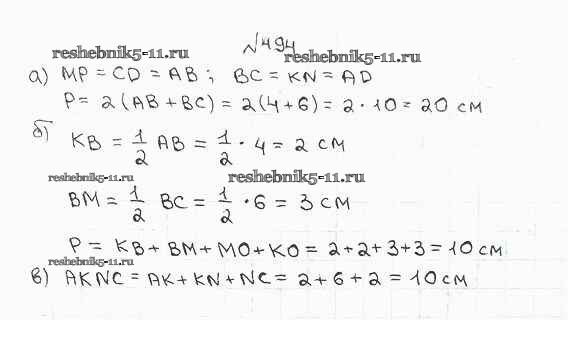 №494
reshebnik5-11.ru reshebnik5-11.ru
а) MP = CD = AB ; BC = KN = AD
P = 2 (AB + BC) = 2(4+6) = 2 · 10 = 20 см
б) KB = 1/2 AB = 1/2 · 4 = 2 см
reshebnik5-11.ru reshebnik5-11.ru
BM = 1/2 BC = 1/2 · 6 = 3 см
P = KB + BM + MO + KO = 2+2+3+3 = 10 см
reshebnik5-11.ru
в) AKNC = AK + KN + NC = 2 + 6 + 2 = 10 см